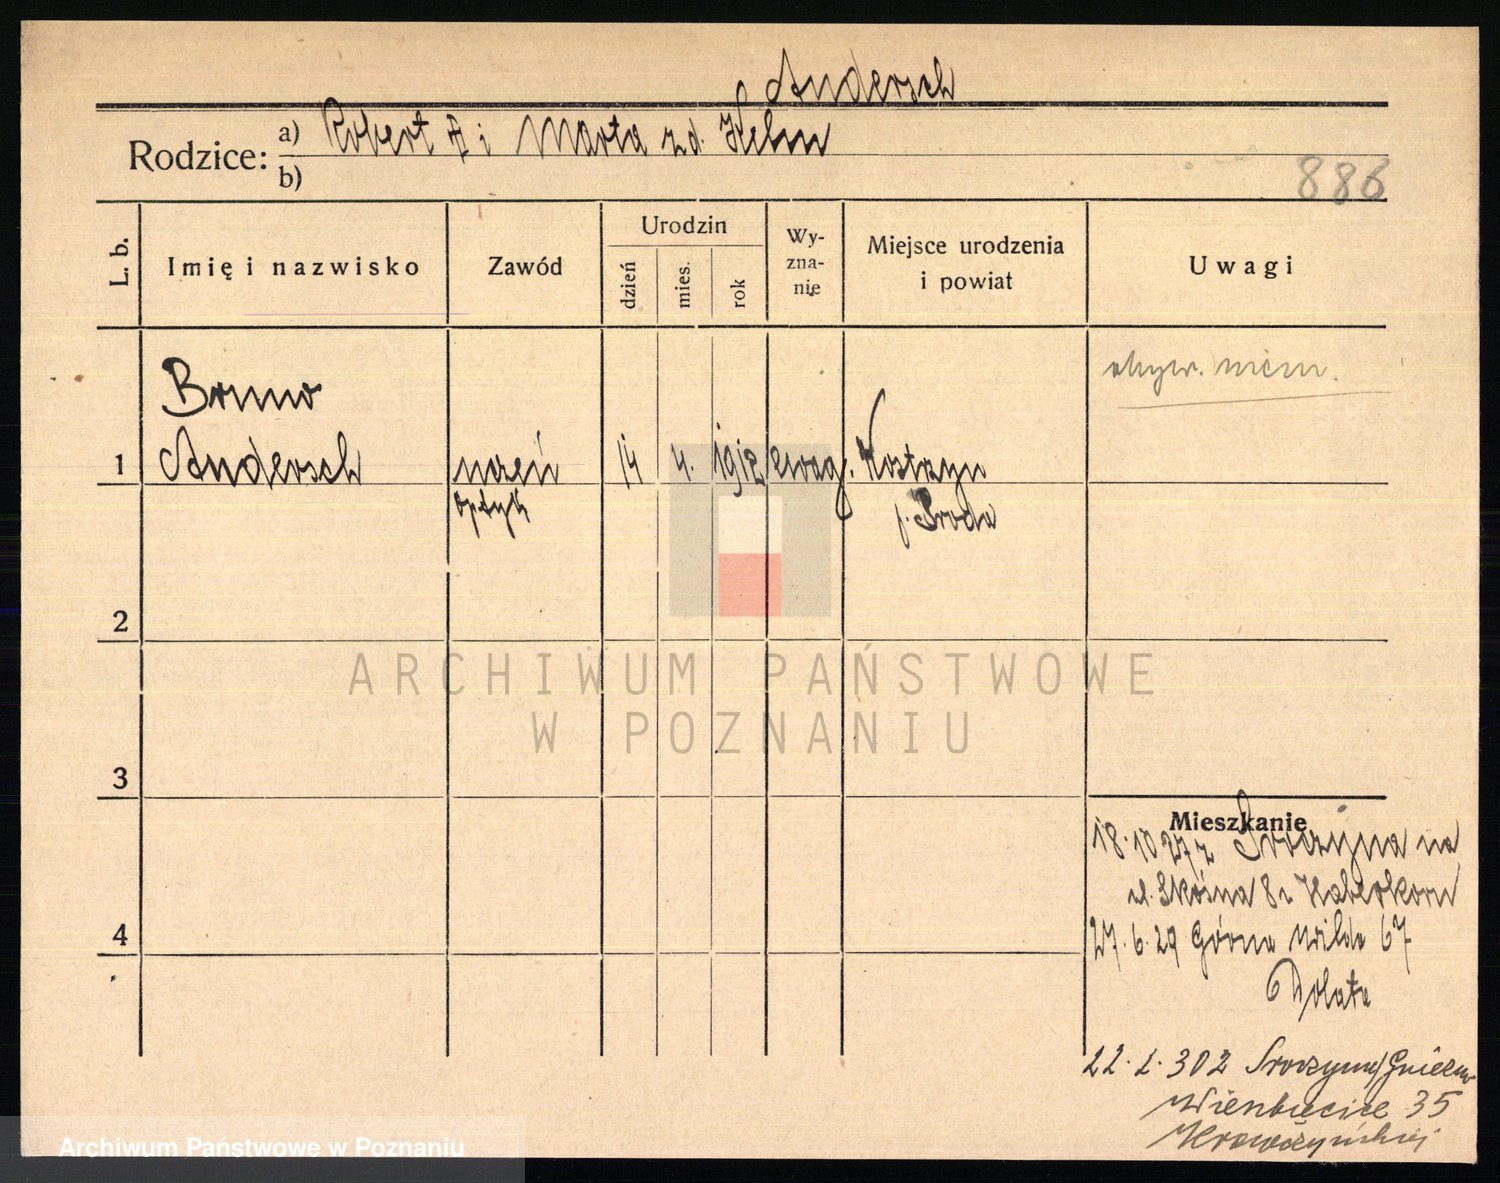 Andersch
Rodzice: a) Robert A i Marta zd. Helm
b)
886
L. b.
Imię i nazwisko
Zawód
Urodzin
dzień
mies.
rok
Wy-
zna-
nie
Miejsce urodzenia
i powiat
Uwagi
obyw. niem.
Bruno
1 Andersch uczeń 14 4. 1912 ewag. Kostrzyn
optyk p. Środa
2
ARCHIWUM PAŃSTWOWE
W POZNANIU
3
Mieszkanie
18.10 27 z na
ul. Skośna 8 Haberkorn
4
27.6.29 Górna Wilda 67
Dolata
22. 30 z
Wierzbięcice 35
Krawczyńskiej
Archiwum Państwowe w Poznaniu